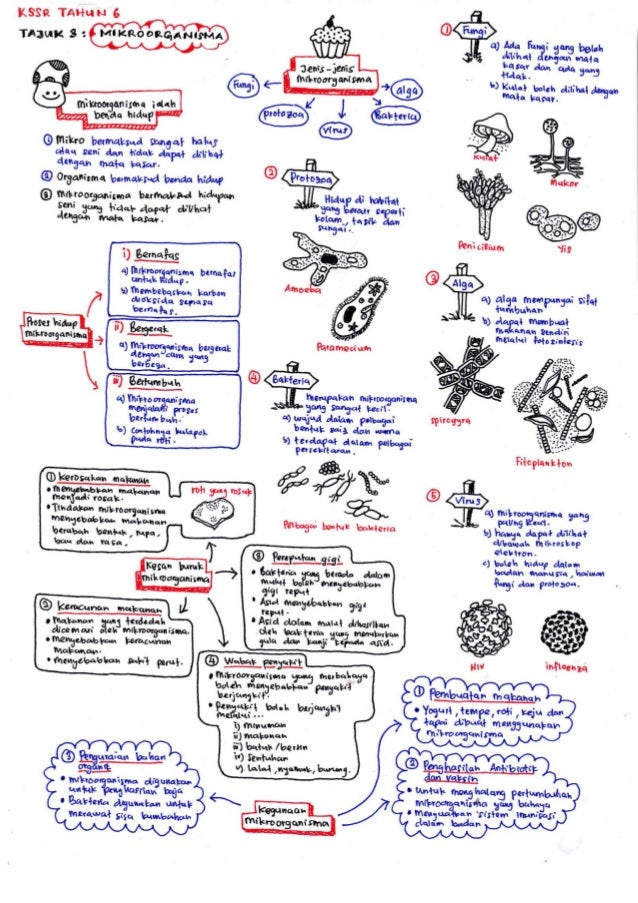 KSSR TAHUN 6
TAJUK 3 : MIKROORGANISMA
mikroorganisma ialah
benda hidup
① Mikro bermaksud sangat halus
atau seni dan tidak dapat dilihat
dengan mata kasar.
② Organisma bermaksud benda hidup
③ Mikroorganisma bermaksud hidupan
seni yang tidak dapat dilihat
dengan mata kasar.
Jenis-jenis
mikroorganisma
Fungi
protozoa
Virus
Bakteria
alga
① Fungi
a) Ada Fungi yang boleh
dilihat dengan mata
kasar dan ada yang
tidak.
b) Kulat boleh dilihat dengan
mata kasar.
Kulat
Mukor
Penicilium
Yis
② Protozoa
Hidup di habitat
yang berair seperti
kolam, tasik dan
sungai.
Amoeba
Paramecium
③ Alga
a) alga mempunyai sifat
tumbuhan
b) dapat membuat
makanan sendiri
melalui fotosintesis
spirogyra
Fitoplankton
Proses hidup
mikroorganisma
i) Bernafas
a) Mikroorganisma bernafas
untuk hidup.
b) Membebaskan karbon
dioksida semasa
bernafas.
ii) Bergerak
a) Mikroorganisma bergerak
dengan cara yang
berbeza.
iii) Bertumbuh
a) Mikroorganisma
menjalani proses
bertumbuh.
b) Contohnya kulapok
pada roti.
④ Bakteria
Merupakan mikroorganisma
yang sangat kecil.
a) wujud dalam pelbagai
bentuk saiz dan warna
b) terdapat dalam pelbagai
persekitaran.
Pelbagai bentuk bakteria
⑤ Virus
a) mikroorganisma yang
paling kecil.
b) hanya dapat dilihat
dibawah mikroskop
elektron.
c) boleh hidup dalam
badan manusia, haiwan
fungi dan protozoa.
HIV
influenza
Kesan buruk
mikroorganisma
① Kerosakan makanan
• menyebabkan makanan
menjadi rosak.
• Tindakan mikroorganisma
menyebabkan makanan
berubah bentuk, rupa,
bau dan rasa.
roti yang rosak
② Keracunan makanan
• Makanan yang terdedah
dicemari oleh mikroorganisma.
• menyebabkan keracunan
makanan.
• menyebabkan sakit perut.
③ Pereputan gigi
• Bakteria yang berada dalam
mulut boleh menyebabkan
gigi reput
• Asid menyebabkan gigi
reput.
• Asid dalam mulut dihasilkan
oleh bakteria yang menukarkan
gula dan kanji kepada asid.
④ Wabak penyakit
• Mikroorganisma yang merbahaya
boleh menyebabkan penyakit
berjangkit.
• Penyakit boleh berjangkit
melalui ...
i) minuman
ii) makanan
iii) batuk / bersin
iv) sentuhan
v) lalat, nyamuk, burung.
Kegunaan
mikroorganisma
① Pembuatan makanan
• Yogurt, tempe, roti, keju dan
tapai dibuat menggunakan
mikroorganisma
② Penghasilan Antibiotik
dan vaksin
• Untuk menghalang pertumbuhan
mikroorganisma yang bahaya
• menguatkan sistem imunisasi
dalam badan
③ Penguraian bahan
organik
• mikroorganisma digunakan
untuk penghasilan baja
• Bakteria digunakan untuk
merawat sisa kumbahan